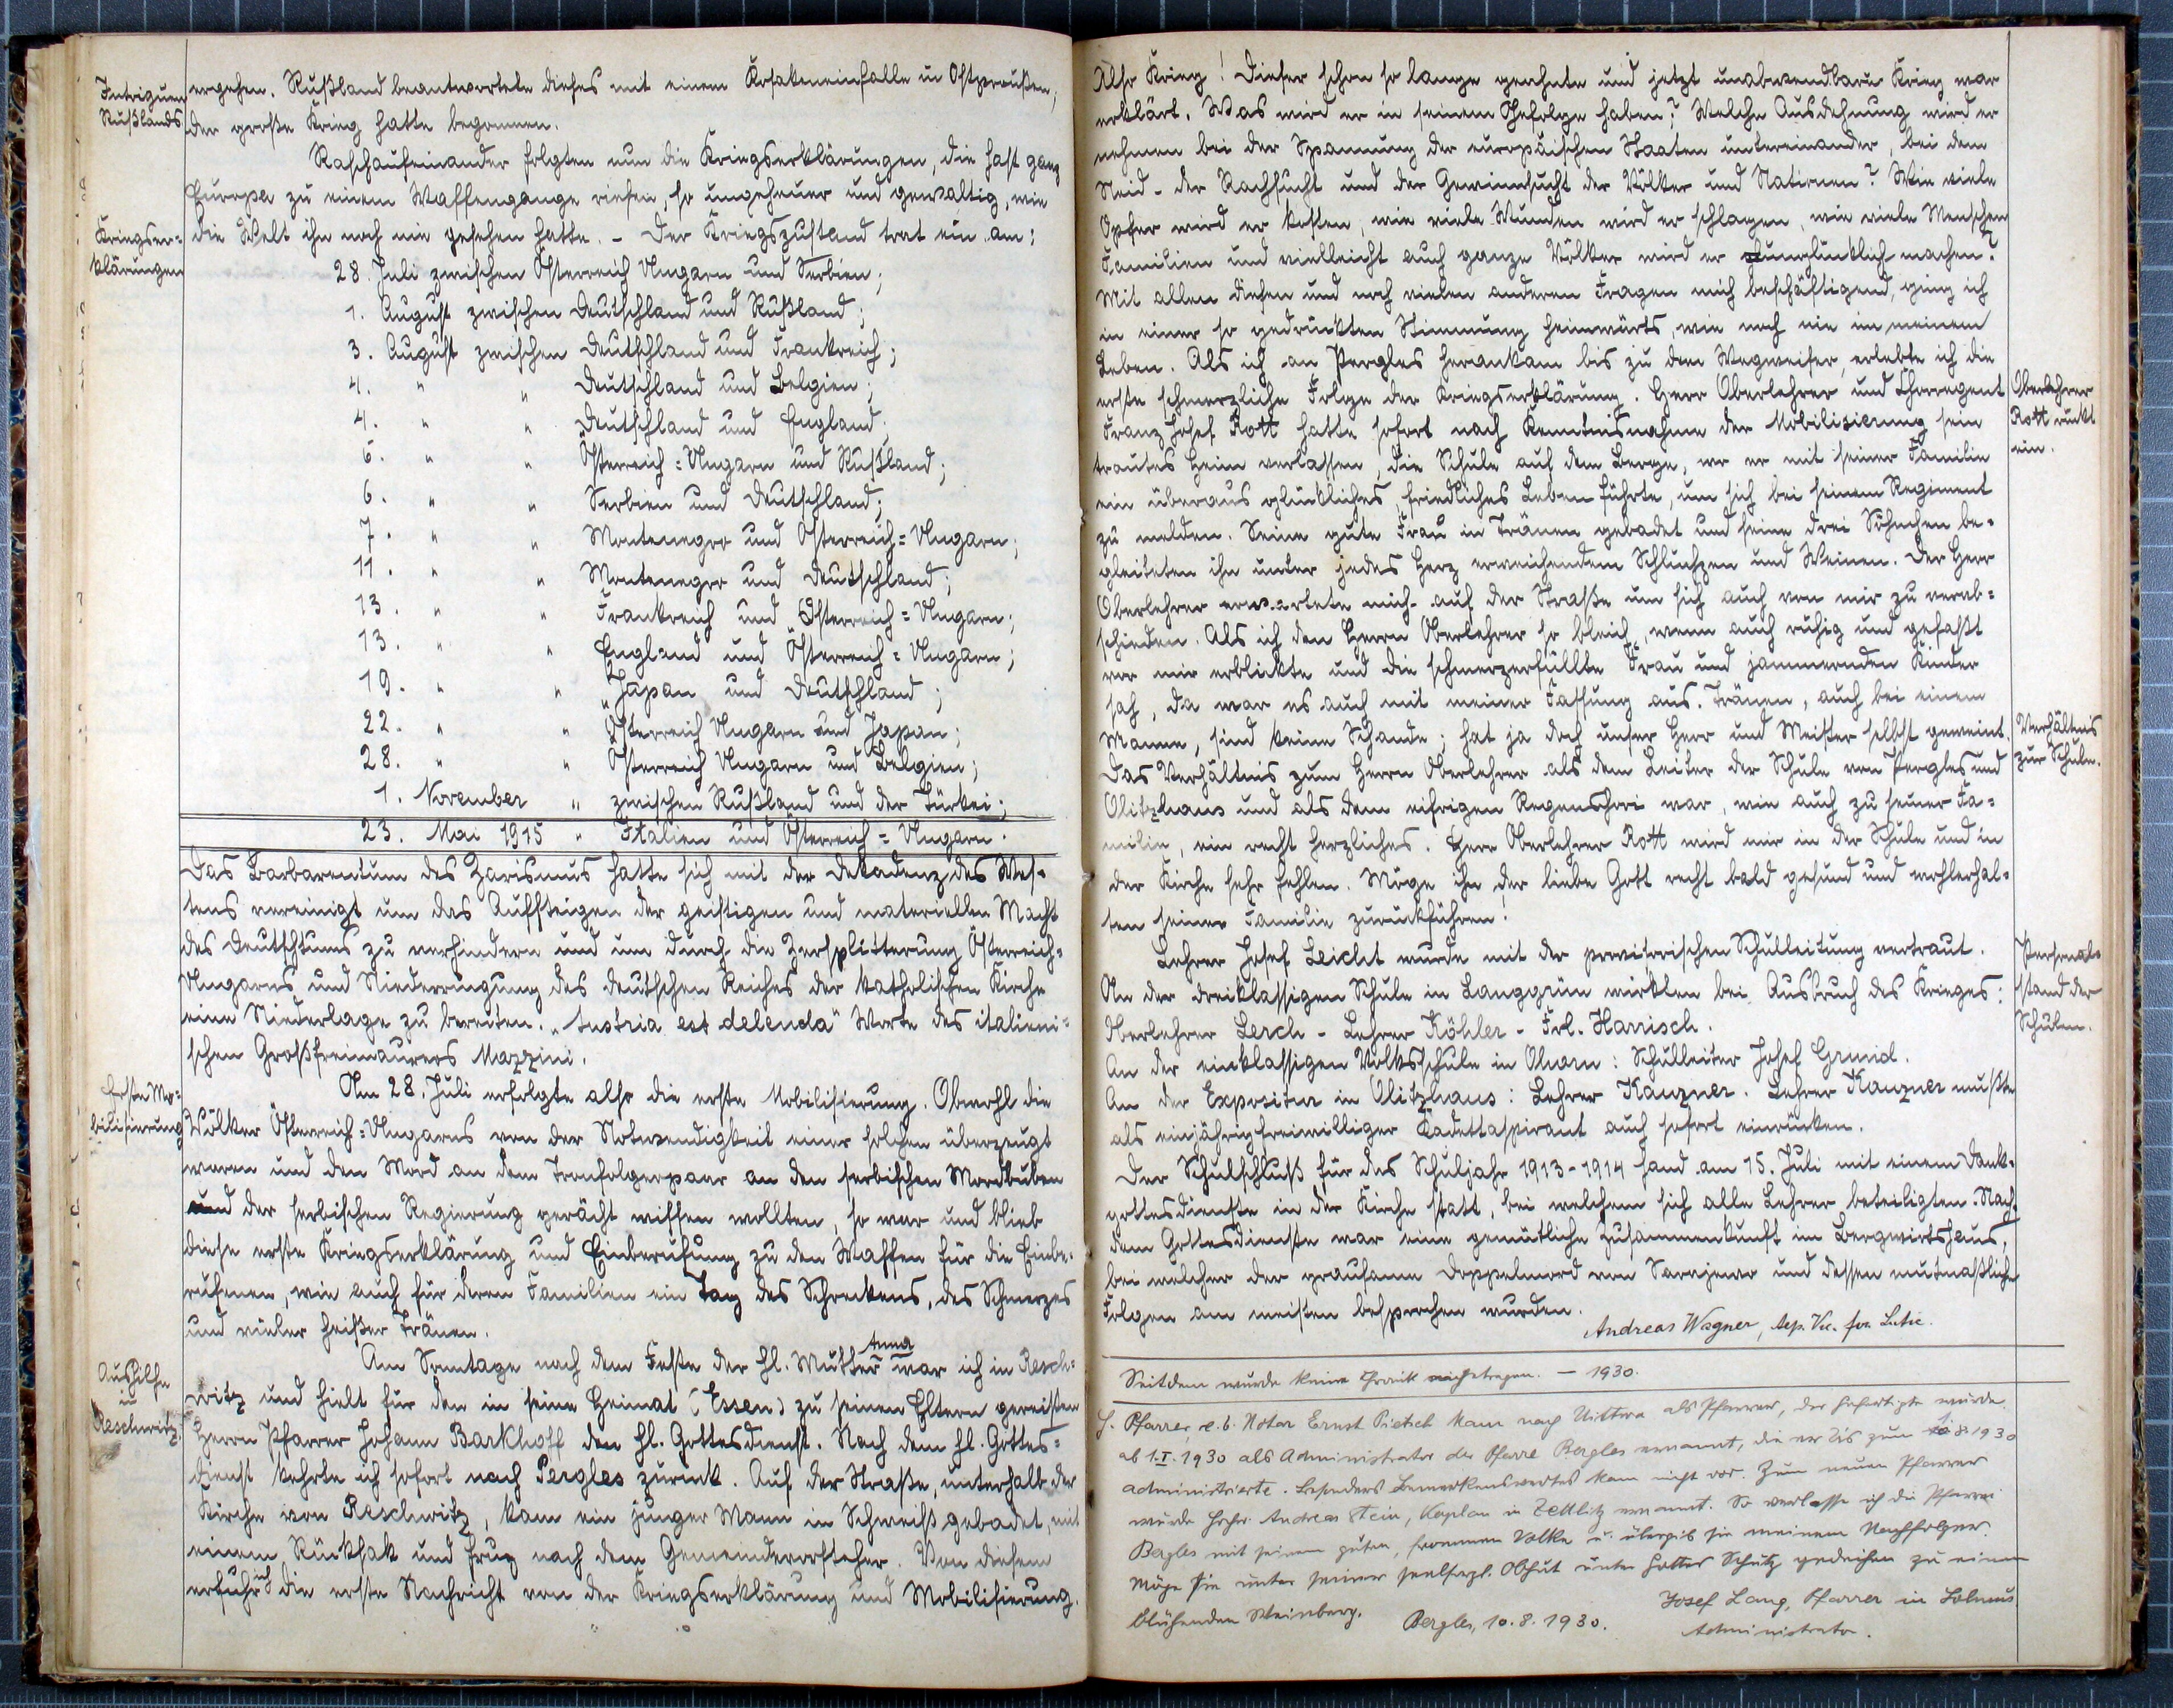 Intriguen
Rußlands
ergehen. Rußland beantwortete dieses mit einem Kosakeneinfalle in Ostpreußen;
der große Krieg hatte begonnen.
Raschaufeinander folgten nun die Kriegserklärungen, die fast ganz
Europa zu einem Waffengange riefen, so ungeheuer und gewaltig, wie
Kriegser=
klärungen
die Welt ihn noch nie gesehen hatte. - Der Kriegszustand trat ein am:
28. Juli zwischen Österreich Ungarn und Serbien;
1. August zwischen Deutschland und Rußland;
3. August zwischen Deutschland und Frankreich;
4. " " Deutschland und Belgien;
4. " " Deutschland und England;
6. " " Österreich=Ungarn und Rußland;
6. " " Serbien und Deutschland;
7. " " Montenegro und Österreich=Ungarn;
11. " " Montenegro und Deutschland;
13. " " Frankreich und Österreich=Ungarn;
13. " " England und Österreich=Ungarn;
19. " " Japan und Deutschland;
22. " " Österreich Ungarn und Japan;
28. " " Österreich Ungarn und Belgien;
1. November " zwischen Rußland und der Türkei;
23. Mai 1915 " Italien und Österreich=Ungarn.
Das Barbarentum des Zarismus hatte sich mit der Dekadenz des Wes=
tens vereinigt um das Aufsteigen der geistigen und materiellen Macht
des Deutschtums zu verhindern und um durch die Zersplitterung Österreich=
Ungarns und Niederringung des deutschen Reiches der katholischen Kirche
eine Niederlage zu bereiten. "Austria est delenda" Worte des italieni=
schen Großfreimaurers Mazzini.
Erste Mo=
bilisierung
Am 28. Juli erfolgte also die erste Mobilisierung. Obwohl die
Völker Österreich=Ungarns von der Notwendigkeit einer solchen überzeugt
waren und den Mord an dem Tronfolgerpaar an den serbischen Mordbuben
und der serbischen Regierung gerächt wissen wollten, so war und blieb
diese erste Kriegserklärung und Einberufung zu den Waffen für die Einbe=
rufenen, wie auch für deren Familien ein Tag des Schreckens, des Schmerzes
und vieler heißer Tränen.
Aushilfe
in
Reschwitz.
Am Sonntage nach dem Feste der hl. Mutter Anna war ich in Resch=
witz und hielt für den in seine Heimat (Essen) zu seinen Eltern gereisten
Herrn Pfarrer Johann Barkhoff den hl. Gottesdienst. Nach dem hl. Gottes=
dienst kehrte ich sofort nach Pergles zurück. Auf der Straße, unterhalb der
Kirche von Reschwitz, kam ein junger Mann in Schweiß gebadet, mit
einem Rucksak und frug nach dem Gemeindevorsteher. Von diesem
erfuhr ich die erste Nachricht von der Kriegserklärung und Mobilisierung.
Also Krieg! Dieser schon so lange geahnte und jetzt unabwendbare Krieg war
erklärt. Was wird er in seinem Gefolge haben? Welche Ausdehnung wird er
nehmen bei der Spannung der europäischen Staaten untereinander, bei dem
Neid - der Rachsucht und der Gewinnsucht der Völker und Nationen? Wie viele
Opfer wird er kosten, wie viele Wunden wird er schlagen, wie viele Menschen
Familien und vielleicht auch ganze Völker wird er unglücklich machen?
Mit allen diesen und noch vielen anderen Fragen mich beschäftigend, ging ich
in einer so gedrückten Stimmung heimwärts, wie noch nie in meinem
Leben. Als ich an Pergles herankam bis zu dem Wegweiser, erlebte ich die
erste schmerzliche Folge der Kriegserklärung. Herr Oberlehrer und Chorregent
Franz Josef Rott hatte sofort nach Kenntnisnahme der Mobilisierung sein
trautes Heim verlassen, die Schule auf dem Berge, wo er mit seiner Familie
Oberlehrer
Rott rückt
ein.
ein überaus glückliches, friedliches Leben führte, um sich bei seinem Regiment
zu melden. Seine gute Frau in Tränen gebadet und seine drei Söhnchen be=
gleiteten ihn unter jedes Herz erweichendem Schluchzen und Weinen. Der Herr
Oberlehrer erwartete mich auf der Straße um sich auch von mir zu verab=
schieden. Als ich den Herrn Oberlehrer so bleich, wenn auch ruhig und gefaßt
vor mir erblickte und die schmerzerfüllte Frau und jammernden Kinder
sah, da war es auch mit meiner Fassung aus. Tränen, auch bei einem
Manne, sind keine Schande; hat ja doch unser Herr und Meister selbst geweint.
Verhältnis
zur Schule.
Das Verhältnis zum Herrn Oberlehrer als dem Leiter der Schule von Pergles und
Olitzhaus und als dem eifrigen Regenschori war, wie auch zu seiner Fa=
milie, ein recht herzliches. Herr Oberlehrer Rott wird mir in der Schule und in
der Kirche sehr fehlen. Möge ihn der liebe Gott recht bald gesund und wohlerhal=
ten seiner Familie zurückführen!
Lehrer Josef Leicht wurde mit der provisorischen Schulleitung vertraut.
Personal=
stand der
Schulen.
An der dreiklassigen Schule in Langgrün wirkten bei Ausbruch des Krieges:
Oberlehrer Lerch - Lehrer Köhler - Frl. Harrisch.
An der einklassigen Volksschule in : Schulleiter Josef Grund.
An der Expositur in Olitzhaus: Lehrer Kauzner. Lehrer Kauzner mußte
als einjährigfreiwilliger Kadettaspirant auch sofort einrücken.
Der Schulschluß für das Schuljahr 1913-1914 fand am 15. Juli mit einem Dank=
gottesdienste in der Kirche statt, bei welchem sich alle Lehrer beteiligten. Nach
dem Gottesdienste war eine gemütliche Zusammenkunft im Bergwirtshaus,
bei welcher der grausame Doppelmord von Sarajewo und dessen mutmaßliche
Folgen am meisten besprochen wurden.
Andreas Wagner,
Seitdem wurde keine Chronik nachgetragen. - 1930.
H. Pfarrer, e.b. Notar Ernst Pietsch kam nach als Pfarrer, der Gefertigte wurde
ab 1.I.1930 als Administrator der Pfarre Pergles ernannt, die er bis zum 10.8.1930
administrierte. Besonders Bemerkenswertes kam nicht vor. Zum neuen Pfarrer
wurde Hochw. Andreas Stein, Kaplan in Zettlitz ernannt. So verlasse ich die Pfarrei
Pergles mit seinem guten, frommen Volke u. übergeb sie meinem Nachfolger.
Möge sie unter seiner seelsorgl. Obhut unter Gottes Schutz gedeihen zu einem
blühenden Weinberg.
Pergles, 10.8.1930.
Josef Lang, Pfarrer in
Administrator.